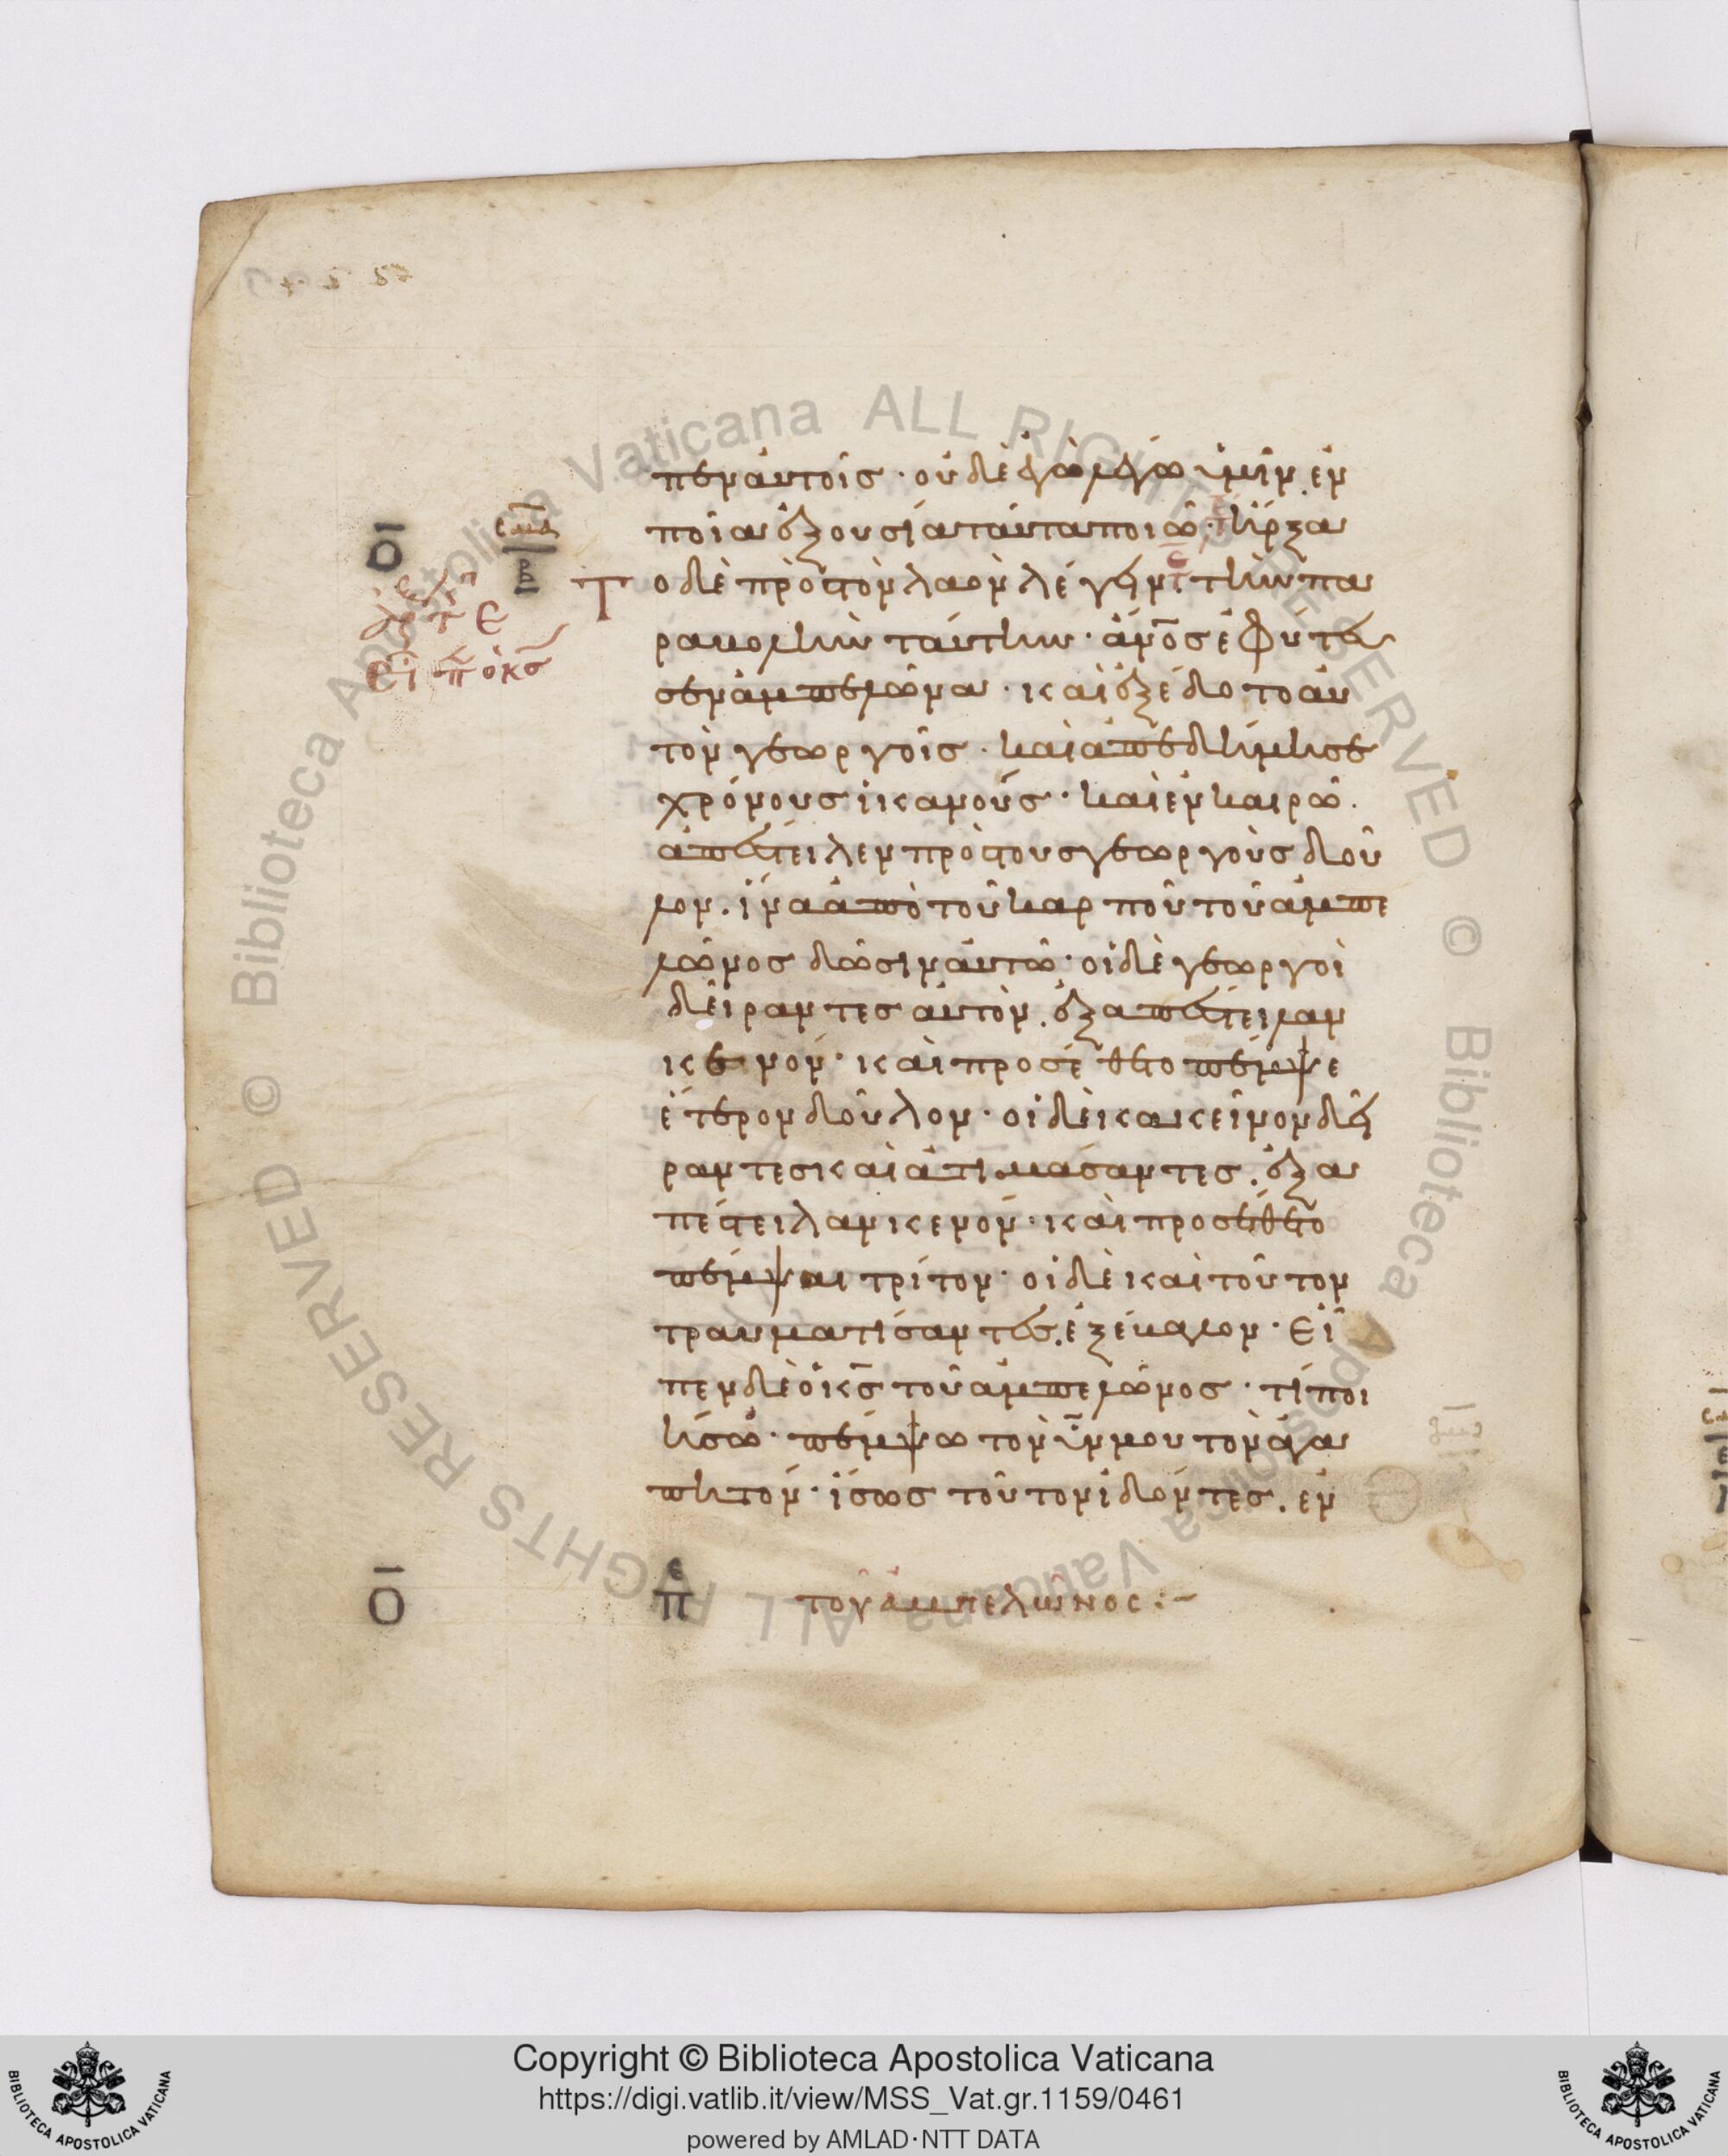 πεν αὐτοῖς · οὐδὲ ἐγὼ λέγω ὑμῖν. ἐν
ποία ἐξουσία ταῦτα ποιῶ · ἤρξα
Το δὲ πρὸς τὸν λαὸν λέγειν τὴν πα
ραβολὴν ταύτην · ἄν̅ο̅σ ἐφύτευ
σεν ἀμπελῶνα · καὶ ἐξέδοτο αὐ
τὸν γεωργοῖς · καὶ ἀπεδήμησε
χρόνους ἱκανούς · καὶ ἐν καιρῶ.
ἀπέστειλεν πρὸς τοὺς γεωργοὺς δοῦ
λον. ἵνα ἀπὸ τοῦ καρποῦ τοῦ ἀμπε
λῶνος δῶσιν αὐτῶ · οἱ δὲ γεωργοὶ
δείραντες αὐτὸν. ἐξαπέστειλαν
κενόν · καὶ προσέθετο πέμψε
ἕτερον δοῦλον · οἱ δὲ κακεῖνον δεί
ραντες καὶ ἀτιμάσαντες. ἐξα
πέστειλαν κενόν · καὶ προσέθετο
πέμψαι τρίτον · οἱ δὲ καὶ τοῦτον
τραυματίσαντες. ἐξέβαλον · Εἶ
πεν δὲ ὁ κ̅σ̅ τοῦ ἀμπελῶνος · τί ποι
ήσω · πέμψω τὸν ὑ̅ν̅ μου τὸν ἀγα
πητόν · ἴσως τοῦτον ἰδόντες. ἐν
ο̅ π ε τοῦ ἀμπελῶνος :-
Copyright © Biblioteca Apostolica Vaticana
https://digi.vatlib.it/view/MSS_Vat.gr.1159/0461
powered by AMLAD·NTT DATA
BIBLIOTECA APOSTOLICA VATICANA
BIBLIOTECA APOSTOLICA VATICANA
© Biblioteca Apostolica Vaticana ALL RIGHTS RESERVED © Biblioteca Apostolica Vaticana ALL RIGHTS RESERVED